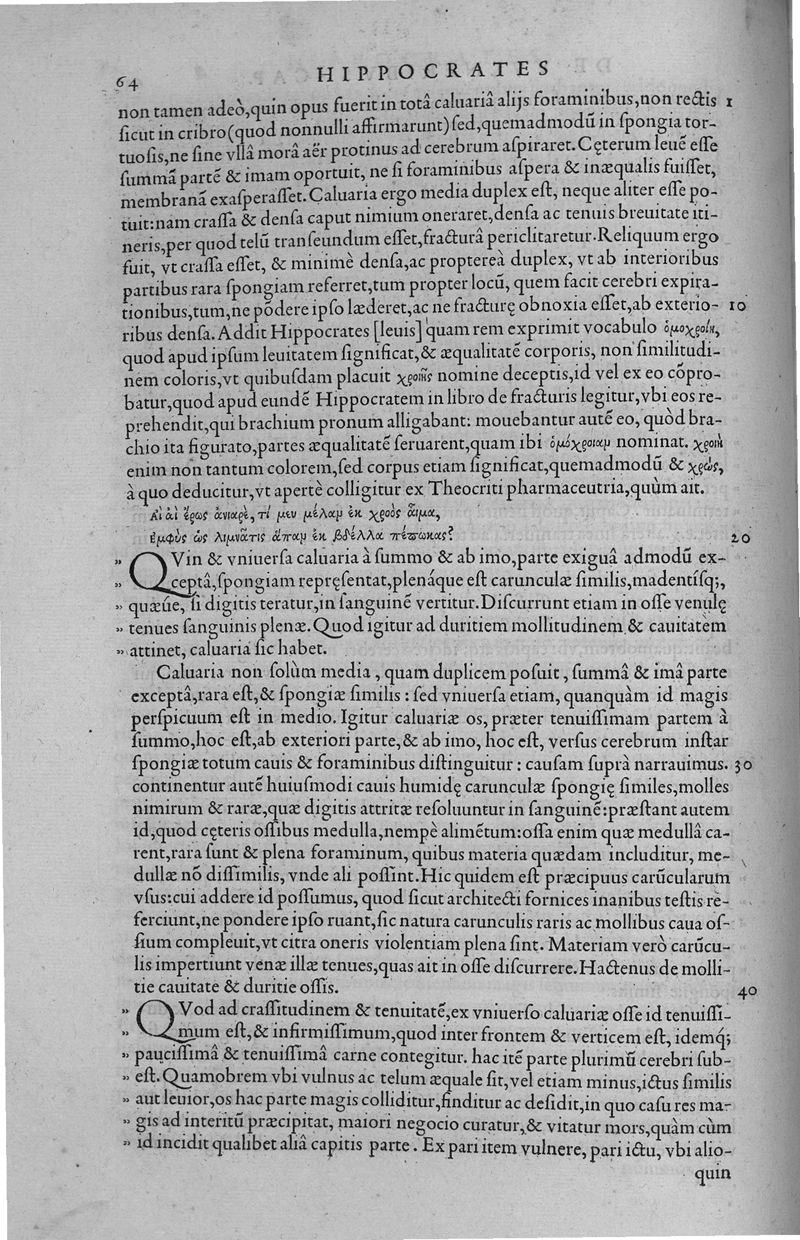 64
HIPPOCRATES
non tamen adeò,quin opus fuerit in totâ caluariâ alijs foraminibus,non rectis 1
ſicut in cribro(quod nonnulli affirmarunt)ſed,quemadmodũ in ſpongia tor-
tuoſis,ne ſine vllâ morâ aër protinus ad cerebrum aſpiraret.Cęterum leue͂ eſſe
ſummã parte͂ & imam oportuit, ne ſi foraminibus aſpera & inæqualis fuiſſet,
membranã exaſperaſſet.Caluaria ergo media duplex eſt, neque aliter eſſe po-
tuit:nam craſſa & denſa caput nimium oneraret,denſa ac tenuis breuitate iti-
neris,per quod telũ tranſeundum eſſet,fracturâ periclitaretur.Reliquum ergo
fuit, vt craſſa eſſet, & minimè denſa,ac proptereà duplex, vt ab interioribus
partibus rara ſpongiam referret,tum propter locũ, quem facit cerebri expira-
tionibus,tum,ne põdere ipſo læderet,ac ne fracturę obnoxia eſſet,ab exterio- 10
ribus denſa. Addit Hippocrates [leuis] quam rem exprimit vocabulo ὁμοχροίη,
quod apud ipſum leuitatem ſignificat,& æqualitate͂ corporis, non ſimilitudi-
nem coloris,vt quibuſdam placuit χροιῆς nomine deceptis,id vel ex eo cõpro-
batur,quod apud eunde͂ Hippocratem in libro de fracturis legitur,vbi eos re-
prehendit,qui brachium pronum alligabant: mouebantur aute͂ eo, quòd bra-
chio ita figurato,partes æqualitate͂ ſeruarent,quam ibi ὁμόχροιαμ nominat. χροιὴ
enim non tantum colorem,ſed corpus etiam ſignificat,quemadmodũ & χρὼς,
à quo deducitur,vt apertè colligitur ex Theocriti pharmaceutria,quùm ait.
Αἲ αἲ ἔρως ἀνιαρὲ, τί μευ μέλαμ ἐκ χροὸς αἷμα,
ἐμφὺς ὡς λιμνᾶτις ἅπαμ ἐκ βδέλλα πέπωκας? 20
„ QVin & vniuerſa caluaria à ſummo & ab imo,parte exiguâ admodũ ex-
„ ceptâ,ſpongiam repręſentat,plenáque eſt carunculæ ſimilis,madentiſq́;,
„ quæúe, ſi digitis teratur,in ſanguine͂ vertitur.Diſcurrunt etiam in oſſe venulę
„ tenues ſanguinis plenæ.Quod igitur ad duritiem mollitudinem & cauitatèm
„ attinet, caluaria ſic habet.
Caluaria non ſolùm media , quam duplicem poſuit , ſummâ & imâ parte
exceptâ,rara eſt,& ſpongiæ ſimilis : ſed vniuerſa etiam, quanquàm id magis
perſpicuum eſt in medio. Igitur caluariæ os, præter tenuiſſimam partem à
ſummo,hoc eſt,ab exteriori parte,& ab imo, hoc eſt, verſus cerebrum inſtar
ſpongiæ totum cauis & foraminibus diſtinguitur : cauſam ſuprà narrauimus. 30
continentur aute͂ huiuſmodi cauis humidę carunculæ ſpongię ſimiles,molles
nimirum & raræ,quæ digitis attritæ reſoluuntur in ſanguine͂:præſtant autem
id,quod cęteris oſſibus medulla,nempè alime͂tum:oſſa enim quæ medullâ ca-
rent,rara ſunt & plena foraminum, quibus materia quædam includitur, me-
dullæ nõ diſſimilis, vnde ali poſſint.Hic quidem eſt præcipuus carũcularum
vſus:cui addere id poſſumus, quod ſicut architecti fornices inanibus teſtis re-
ferciunt,ne pondere ipſo ruant,ſic natura carunculis raris ac mollibus caua oſ-
ſium compleuit,vt citra oneris violentiam plena ſint. Materiam verò carũcu-
lis impertiunt venæ illæ tenues,quas ait in oſſe diſcurrere.Hactenus de molli-
tie cauitate & duritie oſſis. 40
„ QVod ad craſſitudinem & tenuitate͂,ex vniuerſo caluariæ oſſe id tenuiſſi-
„ mum eſt,& infirmiſſimum,quod inter frontem & verticem eſt, idemq́;
„ pauciſſimâ & tenuiſſimâ carne contegitur. hac ite͂ parte plurimũ cerebri ſub-
„ eſt.Quamobrem vbi vulnus ac telum æquale ſit,vel etiam minus,ictus ſimilis
„ aut leuior,os hac parte magis colliditur,finditur ac deſidit,in quo caſu res ma-
„ gis ad interitũ præcipitat, maiori negocio curatur,& vitatur mors,quàm cùm
„ id incidit qualibet aliâ capitis parte . Ex pari item vulnere, pari ictu, vbi alio-
quin